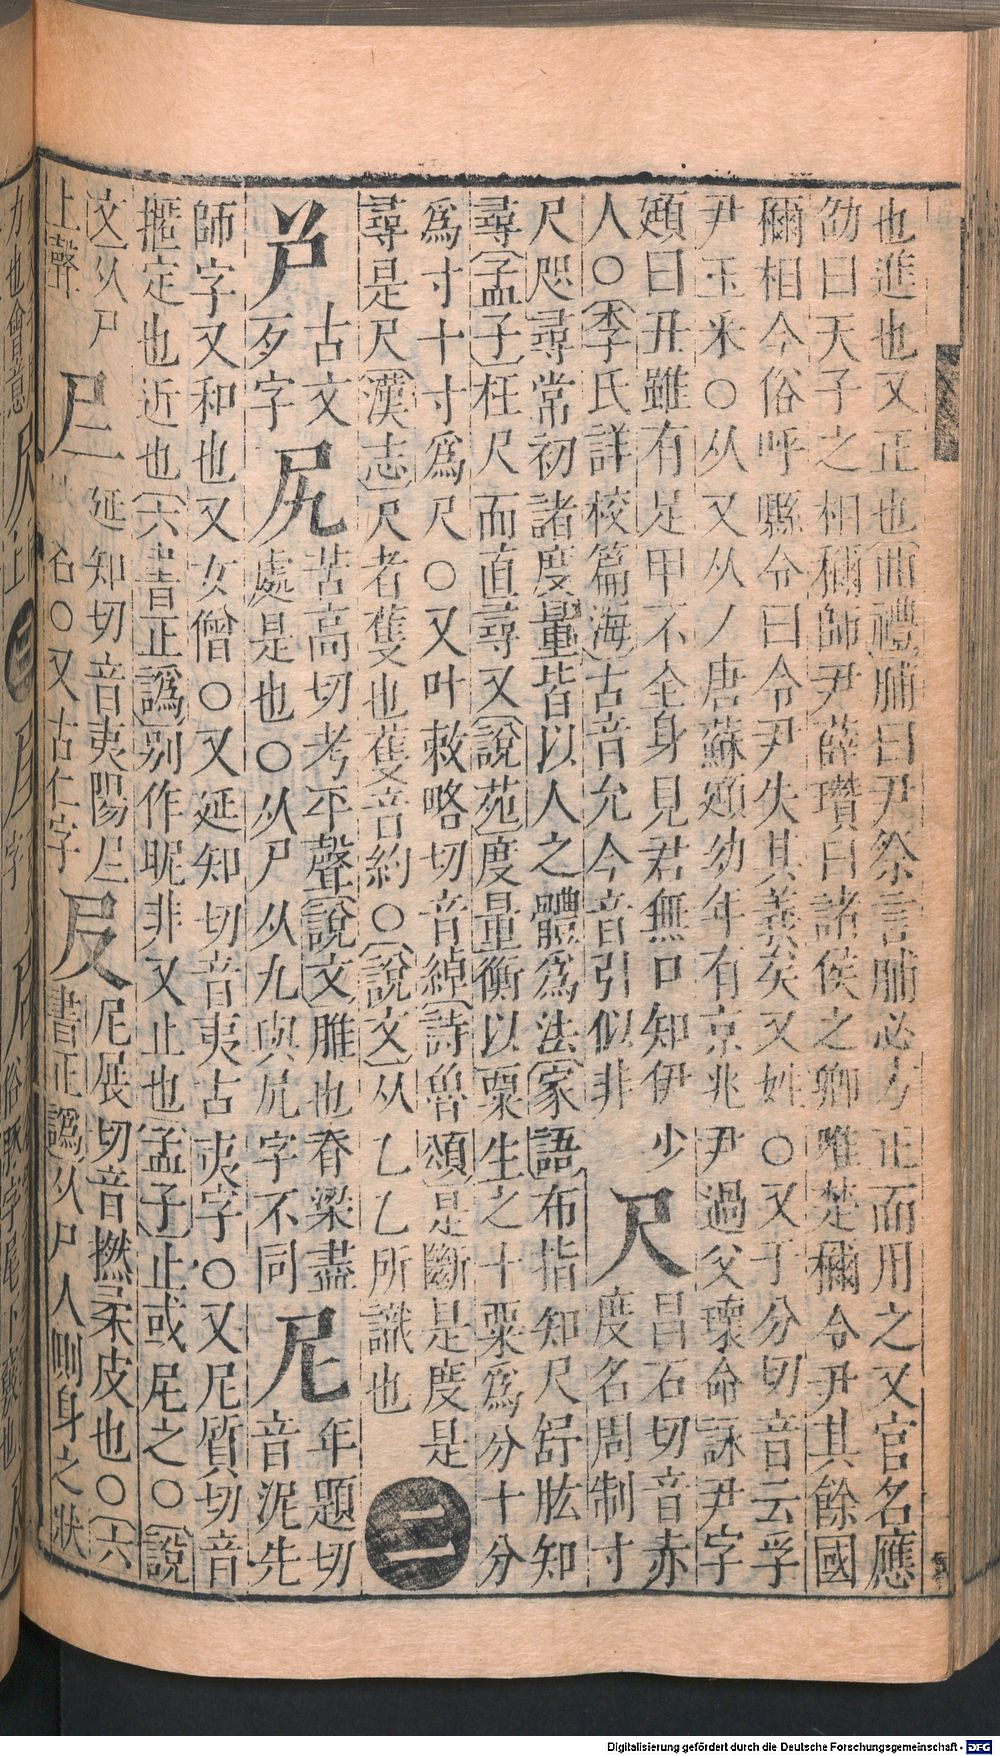 也進也又正也〔曲禮〕脯曰尹祭言脯必方正而用之又官名應
劭曰天子之相稱師尹薛瓚曰諸侯之卿唯楚稱令尹其餘國
稱相今俗呼縣令曰令尹失其義矣又姓〇又于分切音云孚
尹玉釆〇从又从丿唐蘇頲幼年有京兆尹過父瓌命詠尹字
頲曰丑雖有足甲不全身見君無口知伊少
人〇〔李氏詳校篇海〕古音允今音引似非
尺
昌石切音赤
度名周制寸
尺咫尋常初諸度量皆以人之體爲法〔家語〕布指知尺舒肱知
尋〔孟子〕枉尺而直尋又〔說苑〕度量衡以粟生之十粟爲分十分
爲寸十寸爲尺〇又叶敕略切音綽〔詩魯頌〕是斷是度是
尋是尺〔漢志〕尺者蒦也蒦音約〇〔說文〕从乙乙所識也
二
𡰣
古文
歹字
尻
苦高切考平聲〔說文〕脽也脊梁盡
處是也〇从尸从九與凥字不同
尼
年題切
音泥先
師字又和也又女僧〇又延知切音夷古夷字〇又尼質切音
搱定也近也〔六書正譌〕别作昵非又止也〔孟子〕止或尼之〇〔說
文〕从尸
上聲
𡰥
延知切音夷陽𡰥
名〇又古仁字
𡰫
尼展切音撚柔皮也〇〔六
書正譌〕从尸人側身之狀
Digitalisierung gefördert durch die Deutsche Forschungsgemeinschaft - DFG